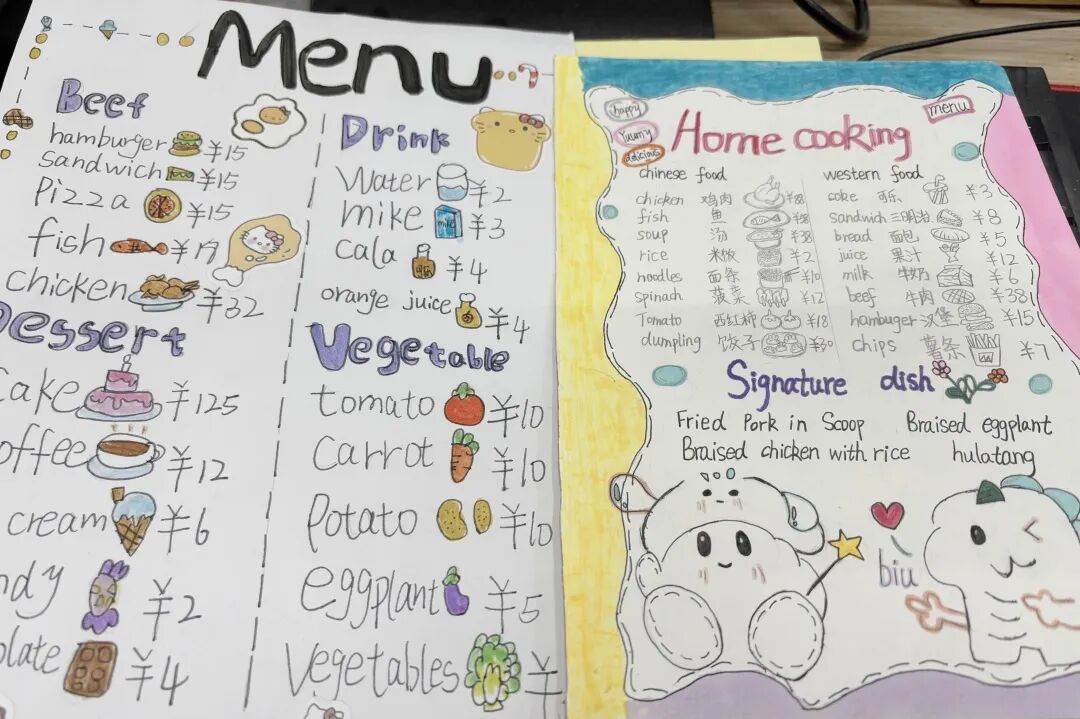 Menu
Beef
hamburger ¥15
sandwich ¥15
Pizza ¥15
fish ¥19
chicken ¥32
Dessert
Cake ¥125
offee ¥12
cream ¥6
ndy ¥2
olate ¥4
Drink
Water ¥2
mike mike ¥3
cala ¥4
orange juice ¥4
Vegetable
tomato ¥10
Carrot ¥10
Potato ¥10
eggplant ¥5
Vegetables ¥
happy
Yummy
delicious
menu
Home cooking
chinese food
chicken 鸡肉
fish 鱼
soup 汤 ¥38
rice 米饭 ¥2
noodles 面条 ¥10
Spinach 菠菜 ¥12
Tomato 西红柿 ¥18
dumpling 饺子
western food
coke 可乐 ¥3
sandwich 三明治 ¥8
bread 面包 ¥5
juice 果汁 ¥12
milk 牛奶 ¥6
beef 牛肉 ¥38
hambuger 汉堡 ¥15
chips 薯条 ¥7
Signature dish
Fried Pork in Scoop Braised eggplant
Braised chicken with rice hulatang
biu